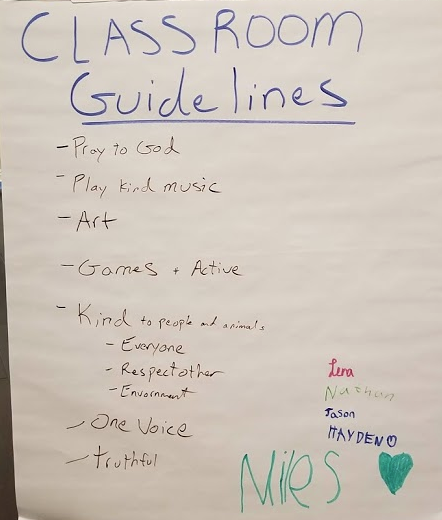 CLASSROOM
Guidelines
- Pray to God
- Play kind music
- Art
- Games + Active
- Kind to people and animals
- Everyone
- Respect other
- Envornment
- One Voice
- truthful
Lena
Nathan
Jason
HAYDEN
Miles